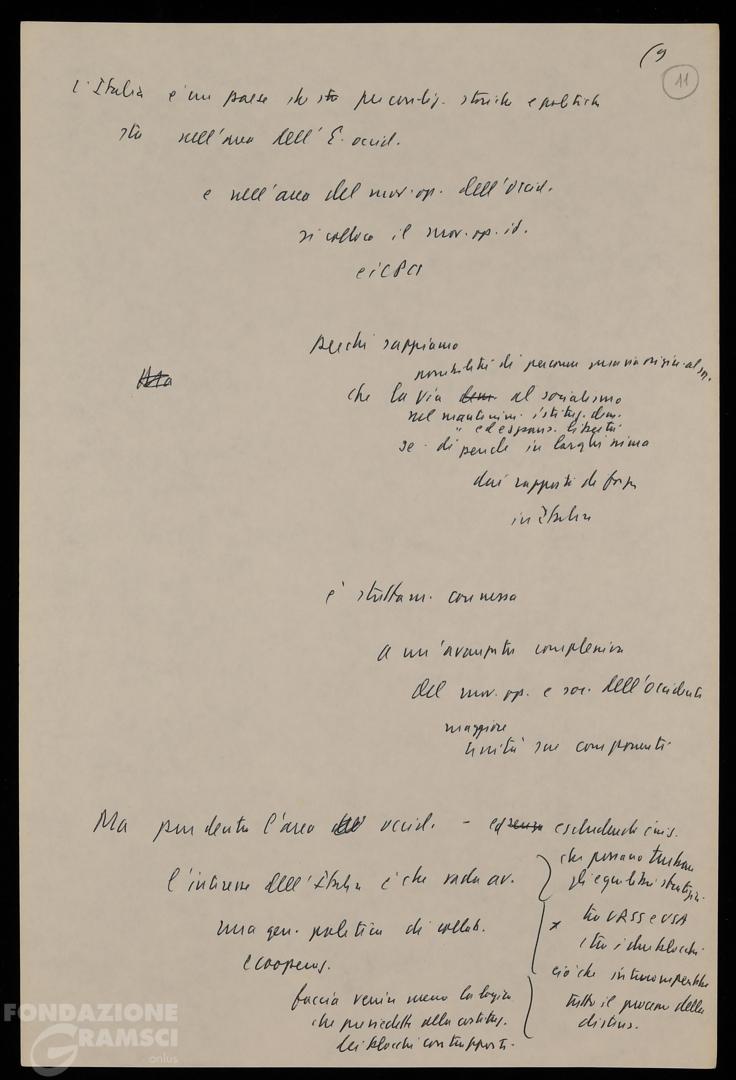 (9
11
L'Italia è un paese che sta per condiz. storiche e politiche
sta nell'area dell'E. occid.
e nell'area del mov. op. dell'occid.
si colloca il mov. op. it.
e il PCI
Ma
Perché sappiamo
possibilità di percorrere una via origin. al so.
che la via dem. al socialismo
nel mantenim. istituz. dem.
" ed espans. libertà
se dipende in larghissima
dai rapporti di forza
in Italia
è strettam. connessa
a un'avanzata complessiva
del mov. op. e soc. dell'occidente
maggiore
unità sue componenti
Ma pur dentro l'area dell' occid. - ed senza escludendo crisi
che possano turbare
l'interesse dell'Italia è che vada av.
gli equilibri strategici
una gen. politica di collab.
x tra URSS e USA
e tra i due blocchi
e cooperaz.
ciò che interromperebbe
faccia venir meno la logica
tutto il processo della
che presiedette alla costituz.
distens.
dei blocchi contrapposti.
FONDAZIONE
GRAMSCI
onlus